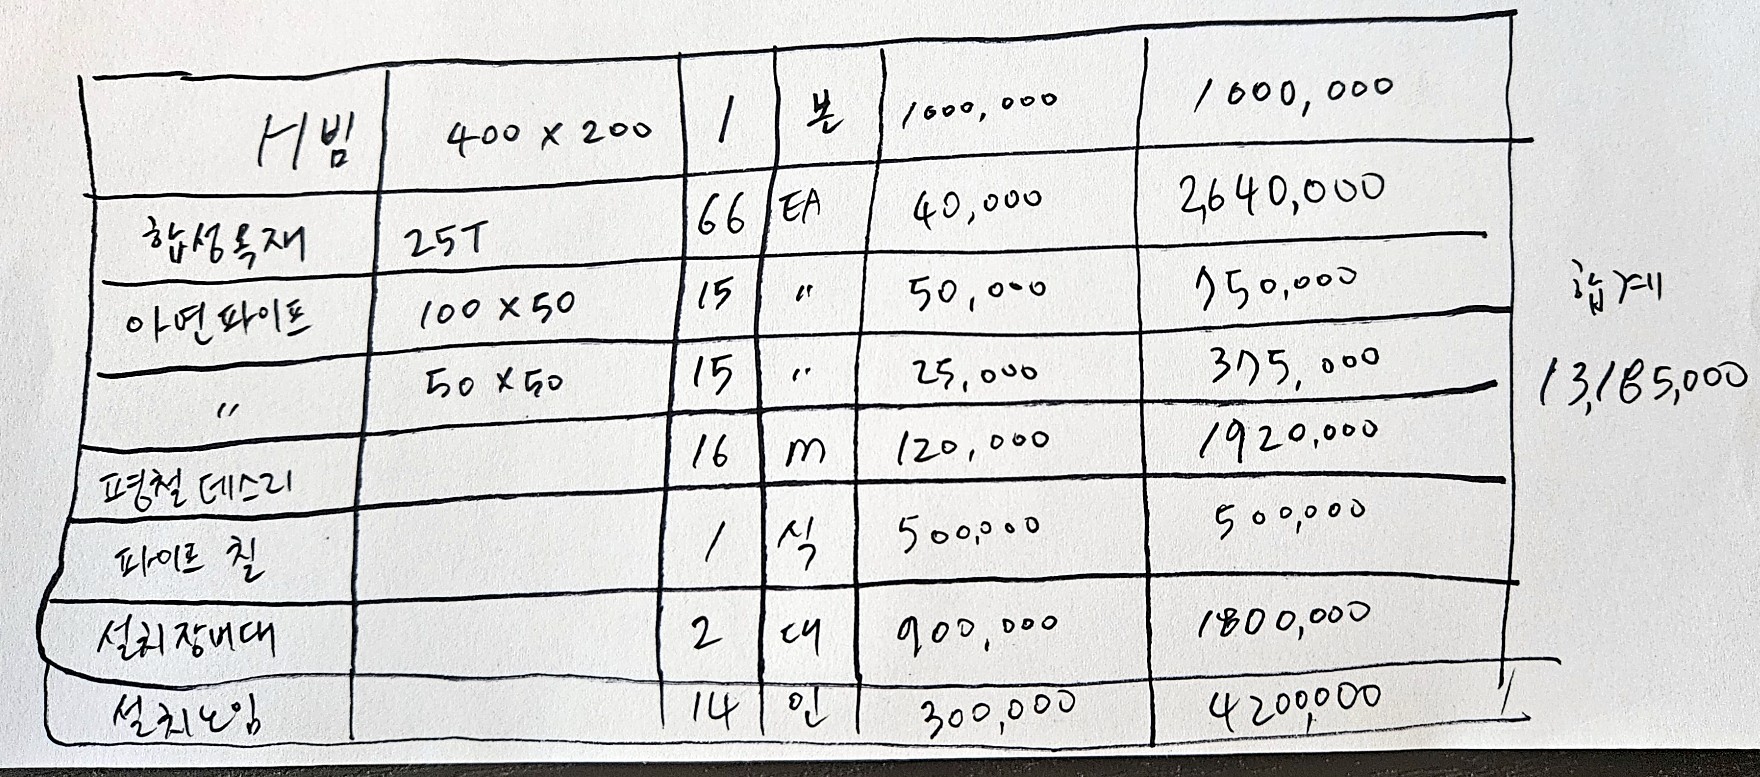 H빔 400 x 200 1 본 1000,000 1000,000
합성목재 25T 66 EA 40,000 2,640,000
아연파이프 100 x 50 15 〃 50,000 750,000
〃 50 x 50 15 〃 25,000 375,000
평철 데스리 16 m 120,000 1920,000
파이프 칠 1 식 500,000 500,000
설치장비대 2 대 900,000 1800,000
설치노임 14 인 300,000 4200,000
합계
13,185,000